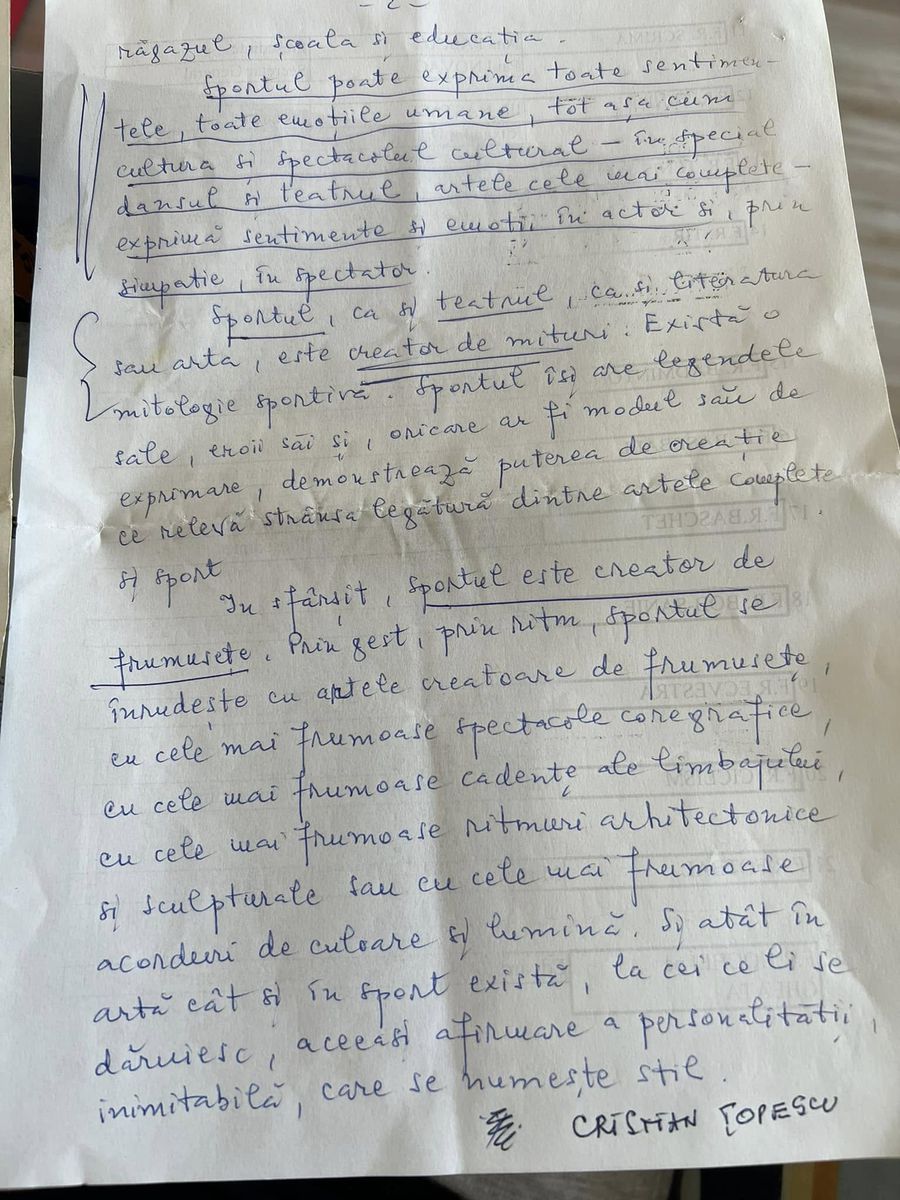 - 2 -
răgazul, școala și educația.
Sportul poate exprima toate sentimen-
tele, toate emoțiile umane, tot așa cum
cultura și spectacolul cultural – în special
dansul și teatrul, artele cele mai complete –
exprimă sentimente și emoții în actor și, prin
simpatie, în spectator.
Sportul, ca și teatrul, ca și literatura
sau arta, este creator de mituri. Există o
mitologie sportivă. Sportul își are legendele
sale, eroii săi și, oricare ar fi modul său de
exprimare, demonstrează puterea de creație
ce relevă strânsa legătură dintre artele complete
și sport.
În sfârșit, sportul este creator de
frumusețe. Prin gest, prin ritm, sportul se
înrudește cu artele creatoare de frumusețe,
cu cele mai frumoase spectacole coregrafice,
cu cele mai frumoase cadențe ale limbajului,
cu cele mai frumoase ritmuri arhitectonice
și sculpturale sau cu cele mai frumoase
acorduri de culoare și lumină. Și atât în
artă cât și în sport există, la cei ce li se
dăruiesc, aceeași afirmare a personalității,
inimitabilă, care se numește stil.
CRISTIAN ȚOPESCU
17 F.R.BASCHET